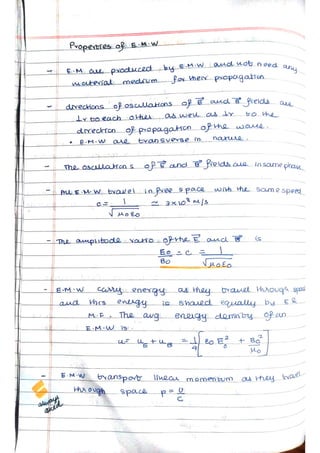 Properties of E.M.W
- E.M. are produced by E.M.W and not need any
material medium for their propagation
- directions of oscillations of E and B fields are
⊥r to each other as well as ⊥r to the
direction of propagation of the wave.
• E.M.W are transverse in nature.
- The oscillations of E and B fields are in same phase
- All E.M.W. travel in free space with the same speed
c = 1/√μ0ε0 ≃ 3×10⁸ m/s
- The amplitude ratio of the E and B is
E0/B0 = c = 1/√μ0ε0
- E.M.W carry energy as they travel through space
and this energy is shared equally by E.F.
M.F. The avg energy density of an
E.M.W is
u = uE + uB = 1/4 [ε0 E0² + B0²/μ0]
- E.M.W transport linear momentum as they travel
through space p = U/C
always
asked